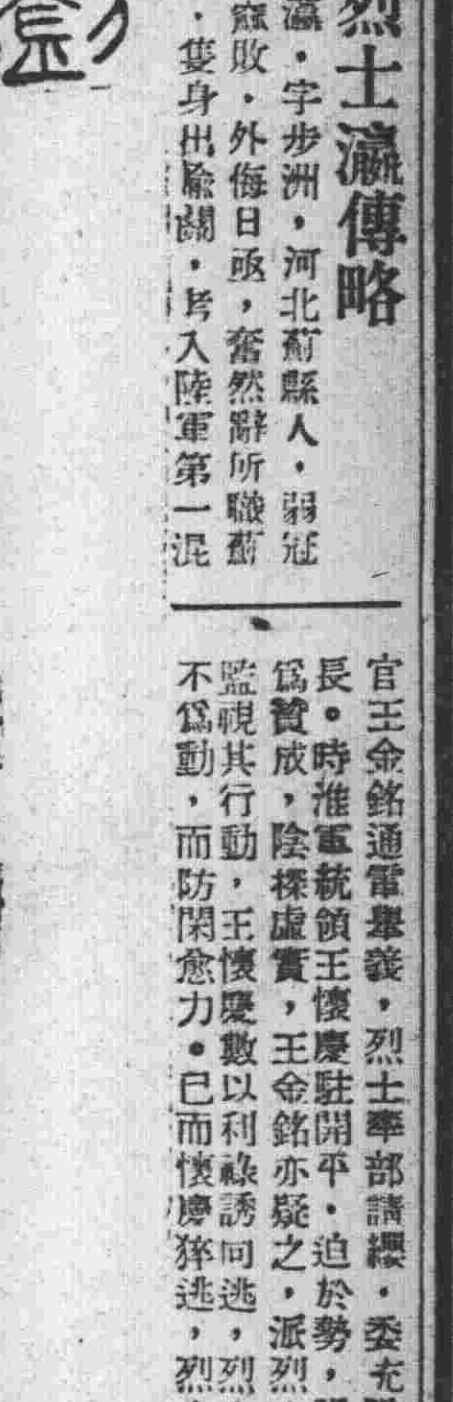 烈士瀛傳略
瀛・字步洲，河北薊縣人・弱冠
敗・外侮日亟，奮然辭所職薊
・隻身出隃關，考入陸軍第一混
官王金銘通電舉義，烈士率部請纓・委充
長。時淮軍統領王懷慶駐開平・迫於勢，
爲贊成，陰探虛實，王金銘亦疑之，派烈
監視其行動，王懷慶數以利祿誘同逃，烈
不爲動，而防閑愈力。已而懷慶猝逃，烈